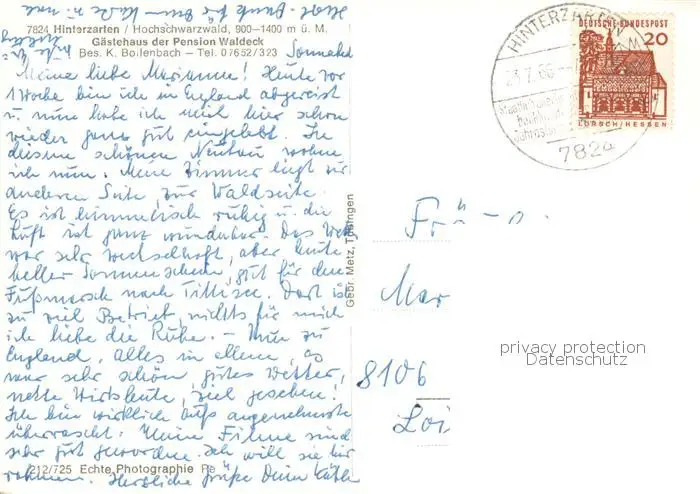 7824 Hinterzarten / Hochschwarzwald, 900–1400 m ü. M.
Gästehaus der Pension Waldeck
Bes. K. Boilenbach – Tel. 07652/323
Sonnabd
Meine liebe Marianne! Heute vor
1 Woche bin ich in England abgereist
u. nun habe ich mich hier schon
wieder ganz gut eingelebt. In
diesem schönen Neubau wohne
ich nun. Meine Zimmer liegt zur
anderen Seite, zur Waldseite.
Es ist himmlisch ruhig u. die
Luft ist ganz wunderbar. Das Wetter
war sehr wechselhaft, aber heute
heller Sonnenschein, gut für den
Fußmarsch nach Titisee. Dort ist
zu viel Betrieb, nichts für mich
ich liebe die Ruhe. – Nun zu
England, alles in allem, es
war sehr schön, gutes Wetter,
nette Wirtsleute, viel gesehen!
Ich bin wirklich aufs angenehmste
überrascht. Meine Filme sind
sehr gut geworden. Ich will sie hier
rahmen. Herzliche Grüße Deine Käthe
212/725 Echte Photographie
Gebr. Metz, Tübingen
HINTERZARTEN
23.7.66
7824
DEUTSCHE BUNDESPOST
20
LORSCH/HESSEN
Mar
8106
Loi
privacy protection
Datenschutz